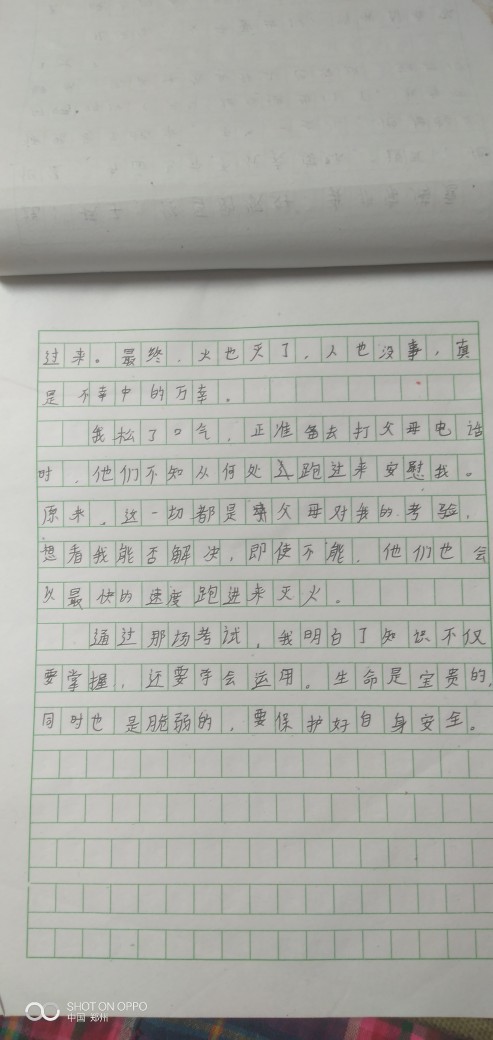 过来。最终，火也灭了，人也没事，真
是不幸中的万幸。
我松了口气，正准备去打父母电话
时，他们不知从何处跑过来安慰我。
原来，这一切都是父母对我的考验，
想看我能否解决，即使不能，他们也会
以最快的速度跑进来灭火。
通过那场考试，我明白了知识不仅
要掌握，还要学会运用。生命是宝贵的，
同时也是脆弱的，要保护好自身安全。
SHOT ON OPPO
中国 郑州